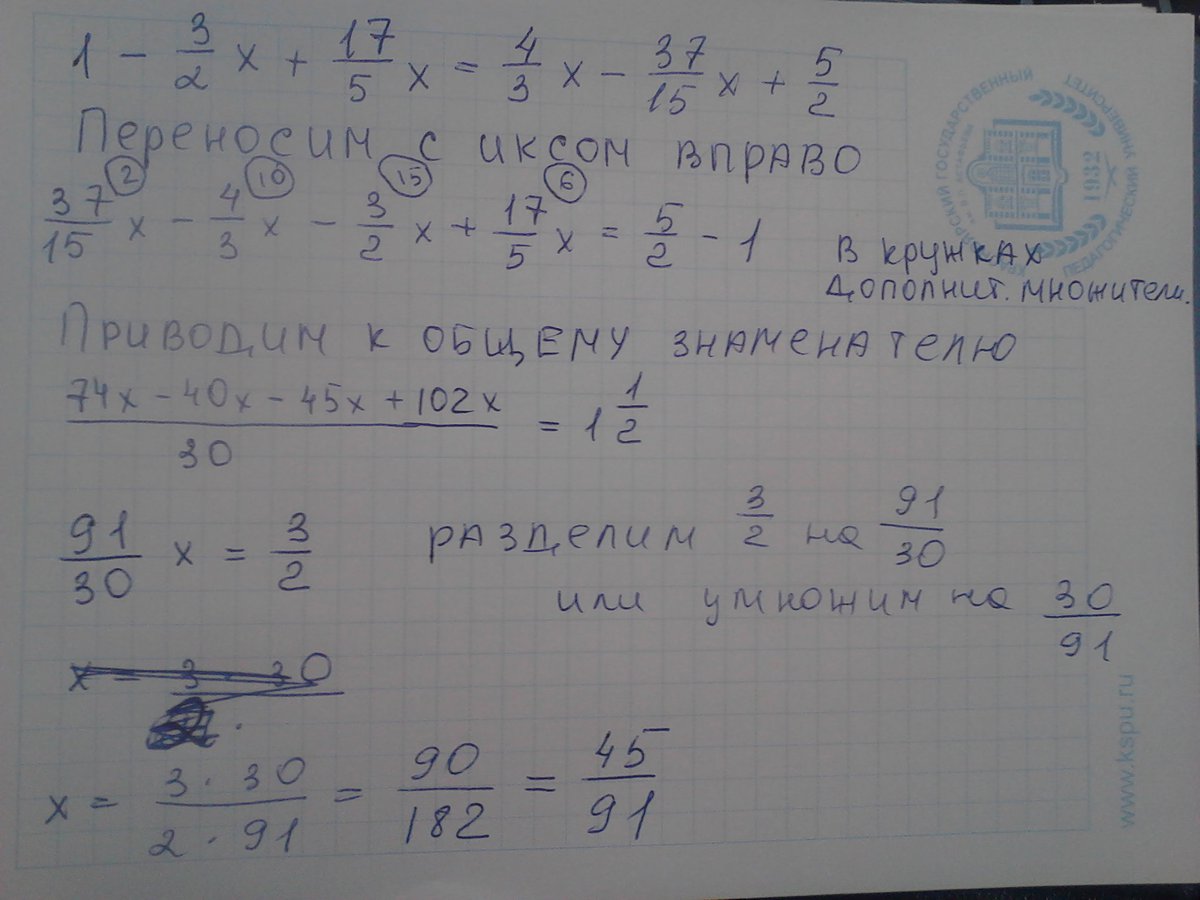 1 - 3/2 x + 17/5 x = 4/3 x - 37/15 x + 5/2
Переносим с иксом вправо
37/15 x - 4/3 x - 3/2 x + 17/5 x = 5/2 - 1
2 10 15 6
В кружках
дополнит. множители.
Приводим к общему знаменателю
(74x - 40x - 45x + 102x)/30 = 1 1/2
91/30 x = 3/2
разделим 3/2 на 91/30
или умножим на 30/91
x = (3 · 30)/(2 · 91) = 90/182 = 45/91
ГОСУДАРСТВЕННЫЙ
ПЕДАГОГИЧЕСКИЙ
УНИВЕРСИТЕТ
1932
www.kspu.ru